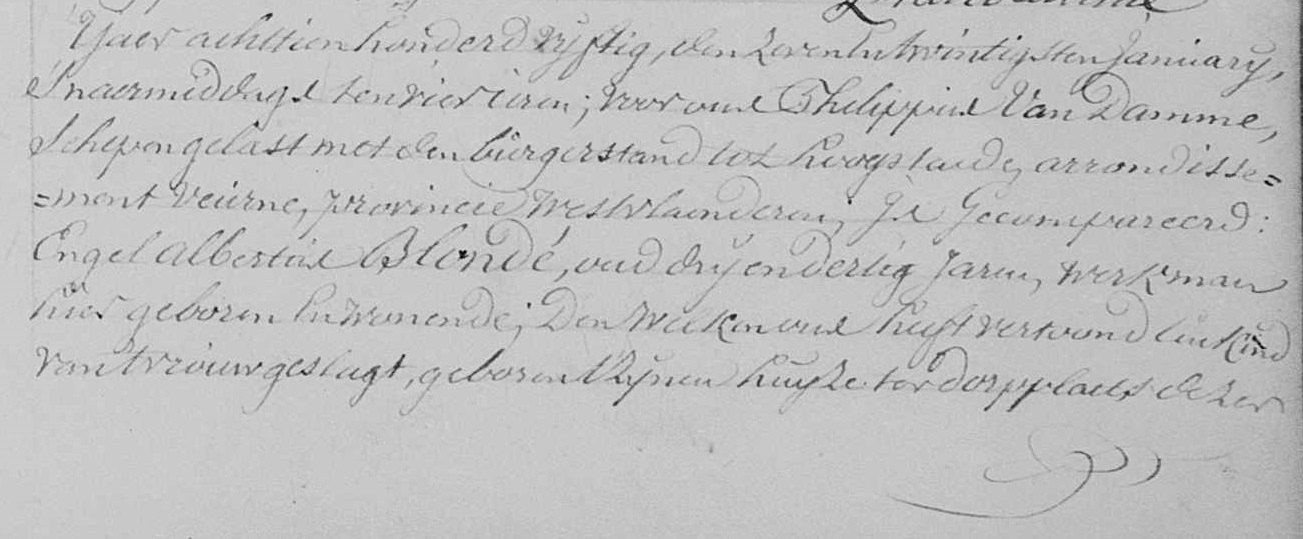 'Tjaer achttien honderd vyftig, den zeven en twintigsten January,
S'naermiddags ten vier uren; voor ons Philippus Van Damme,
Schepen gelast met den burgerstand tot hoogstaede, arrondisse=
=ment Veurne, provincie Westvlaenderen, Is Gecompareerd:
Engel Albertus Blondé, oud dry en dertig Jaren, werkman
hier geboren en wonende; Den welken ons heeft vertoond een Kind
van t vrouwgeslagt, geboren t Zynen huyze ter dorpplaets dezer